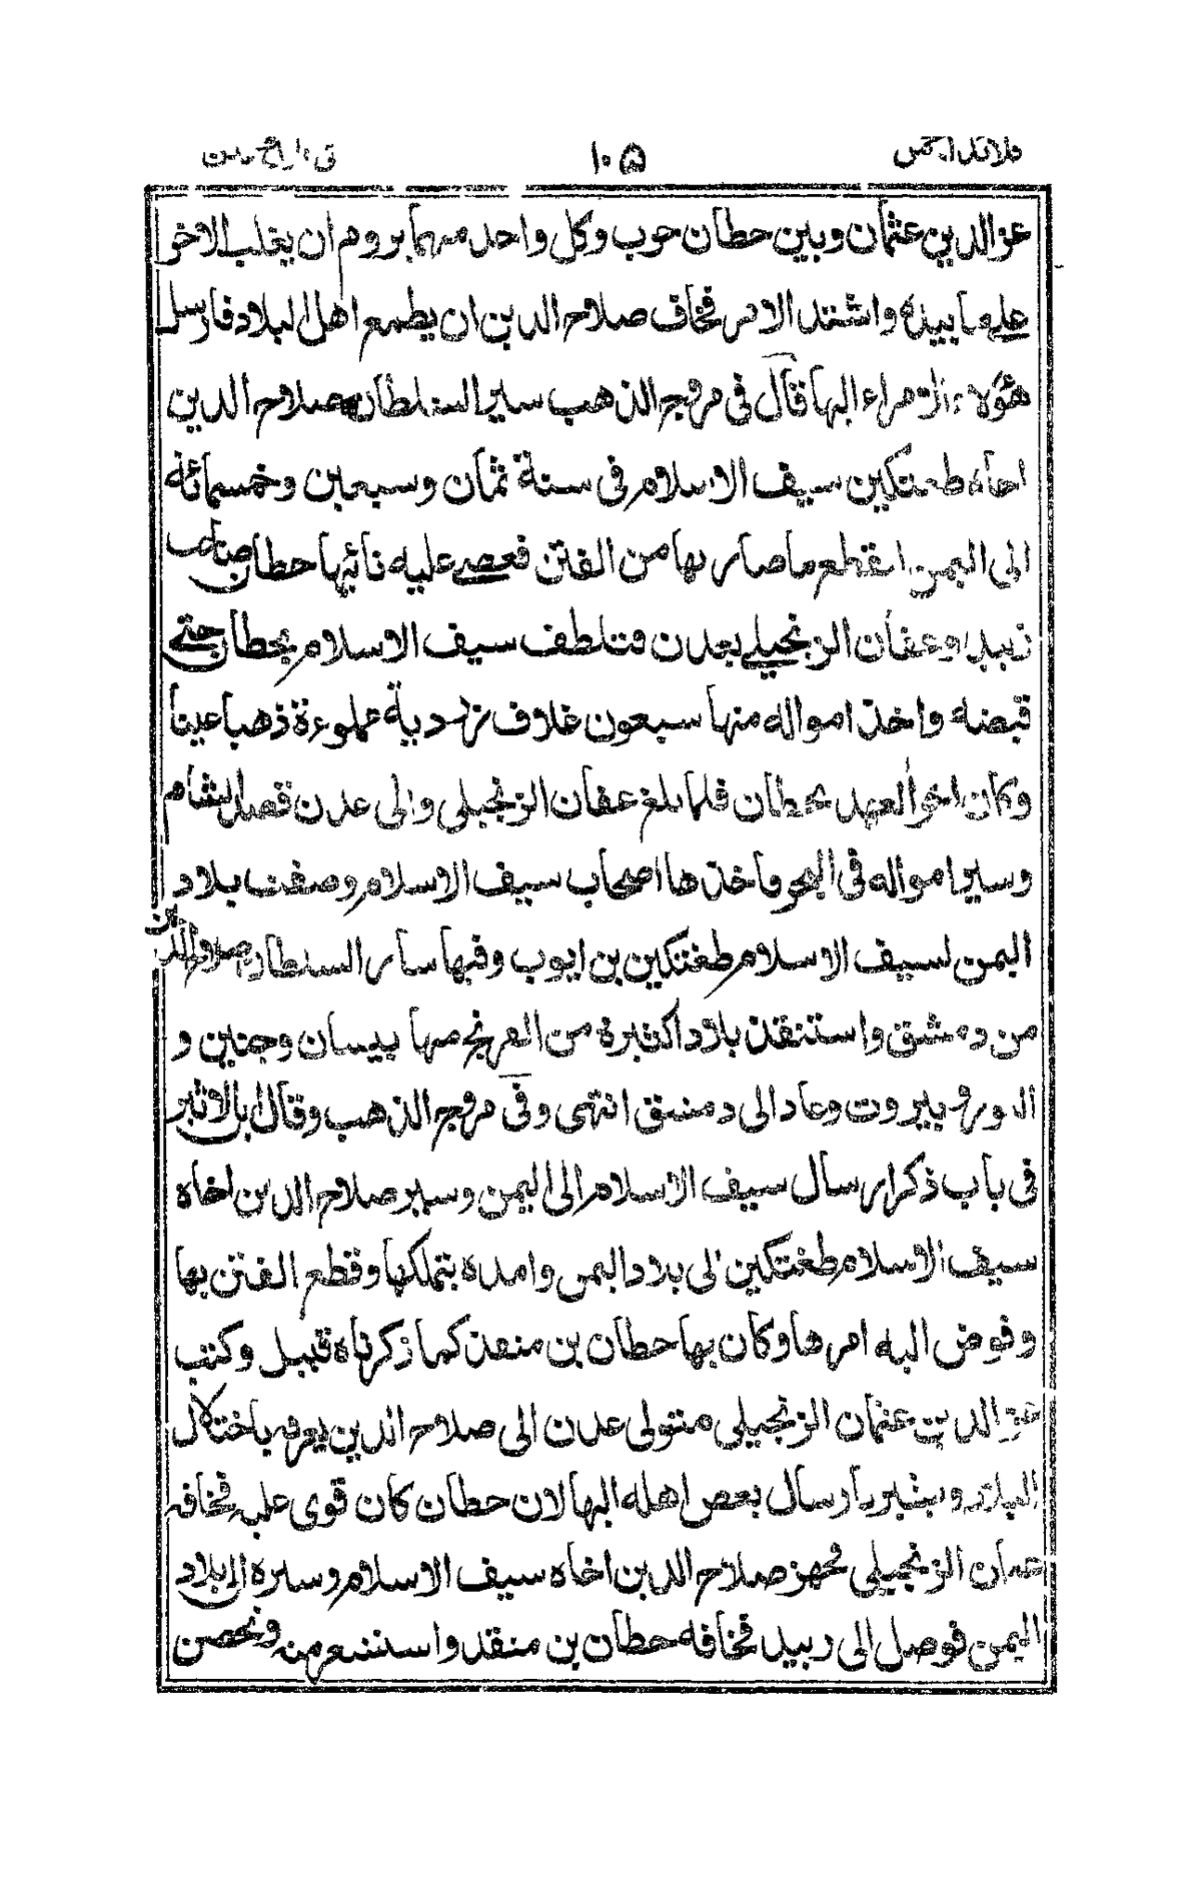 قلائد الجمن ١٠٥ فى تاريخ عدن
عز الدين عثمان وبين حطان حرب وكل واحد منهما يروم ان يغلب الاخر
على ما بيده واشتد الامر فخاف صلاح الدين ان يطمع اهل البلاد فارسل
هؤلاء الامراء اليها قال فى مروج الذهب سير السلطان صلاح الدين
اخاه طغتكين سيف الاسلام فى سنة ثمان وسبعين وخمسمائة
الى اليمن لقطع ما صار بها من الفتن فعصى عليه نائبها حطان صاحب
زبيد وعفان الزنجيلى بعدن فتلطف سيف الاسلام بحطان حتى
قبضه واخذ امواله منها سبعون غلاف زردية مملوءة ذهبا عينا
وكان اخر العهد بحطان فلما بلغ عفان الزنجيلى والى عدن قصد الشام
وسير امواله فى البحر فاخذها اصحاب سيف الاسلام وصفت بلاد
اليمن لسيف الاسلام طغتكين بن ايوب وفيها سار السلطان صلاح الدين
من دمشق واستنقذ بلادا كثيرة من الفرنج منها بيسان وجنين و
الغور وبيروت وعاد الى دمشق انتهى وفى مروج الذهب وقال ابن الاثير
فى باب ذكر ارسال سيف الاسلام الى اليمن وسير صلاح الدين اخاه
سيف الاسلام طغتكين الى بلاد اليمن وامده بتملكها وقطع الفتن بها
وفوض اليه امرها وكان بها حطان بن منقذ كما ذكرناه قبيل وكتب
عز الدين عثمان الزنجيلى متولى عدن الى صلاح الدين يعرفه باختلال
البلاد ويشير بارسال بعض اهله اليها لان حطان كان قوى عليه فخافه
عثمان الزنجيلى فجهز صلاح الدين اخاه سيف الاسلام وسيره الى بلاد
اليمن فوصل الى زبيد فخافه حطان بن منقذ واستشعر منه وتحصن